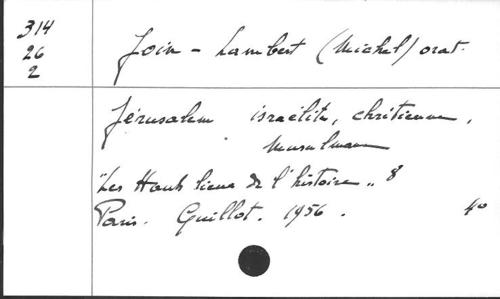 314
26
2
Join - Lambert (Michel) orat.
Jérusalem israélite, chrétienne,
musulmane
"Les Hauts lieux de l'histoire" 8
Paris. Guillot. 1956. 4º